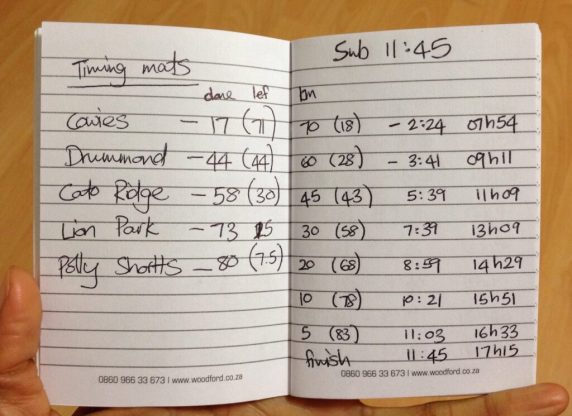 Timing mats
done left
Cowies - 17 (71)
Drummond - 44 (44)
Cato Ridge - 58 (30)
Lion Park - 73 15
Polly Shortts - 80 (7.5)
0860 966 33 673 | www.woodford.co.za
Sub 11:45
km
70 (18) - 2:24 07h54
60 (28) - 3:41 09h11
45 (43) 5:39 11h09
30 (58) 7:39 13h09
20 (68) 8:59 14h29
10 (78) 10:21 15h51
5 (83) 11:03 16h33
finish 11:45 17h15
0860 966 33 673 | www.woodford.co.za